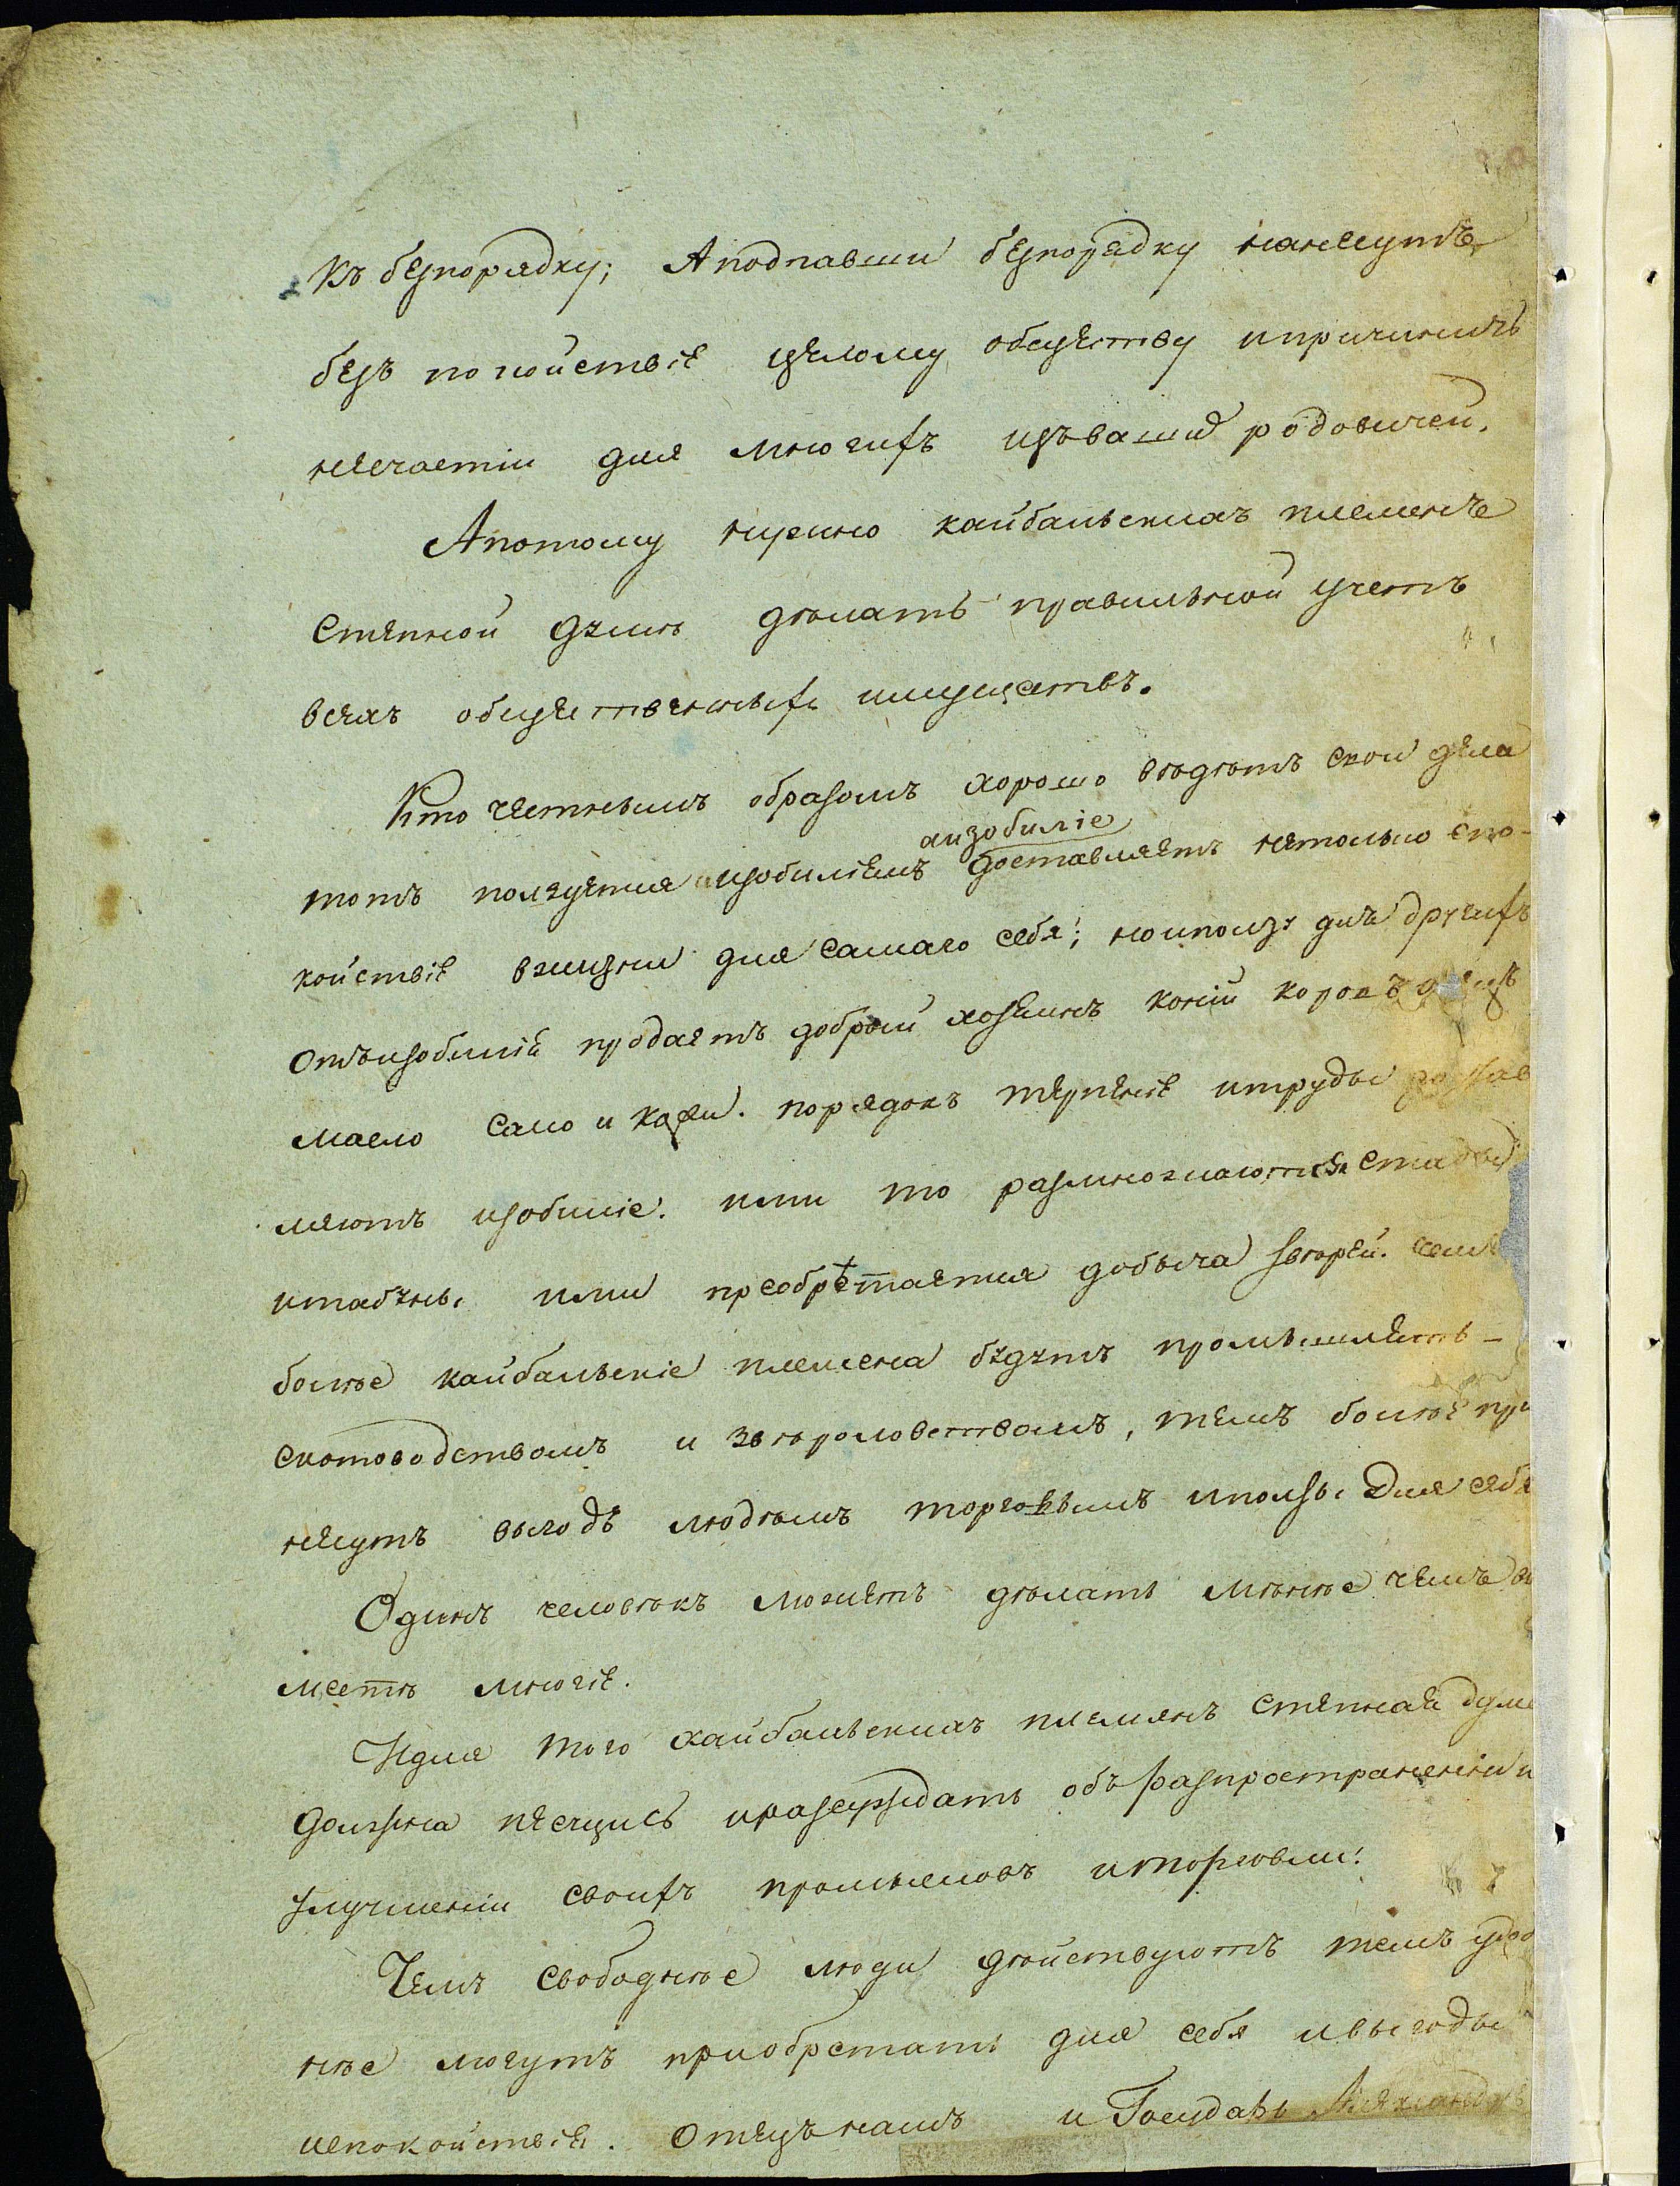 къ безпорядку; Аподпавши безпорядку нанесутъ
безъ покойствіе целому обществу ипричинитъ
нещастіи для многихъ изъвашихъ родовичей.
Апотому нужно кайбальскихъ племенъ
степной думъ дѣлать правильной учетъ
всехъ общественныхъ имуществъ.
Кто честнымъ образомъ хорошо вѣдѣтъ свои дела
аизобиліе
тотъ ползуется изобиліемъ доставляетъ нетолько спо-
койствіе вжизни для самаго себя; ноипользу для другихъ
Отъизобилій продаетъ доброй хозеинъ коній коровъ овецъ
масло сало и кожи. порядокъ терпеніе итруды
ляютъ изобиліе. ими то размножаются стады
итабуны ими преобретается добыча звѣрей. чемъ
болѣе кайбальскіе племена будутъ промышлять-
скотоводствомъ и звѣроловствомъ, темъ болѣе при
несутъ выгодъ людѣмъ торговымъ ипользы для себя
Одинъ человѣкъ можетъ дѣлать мѣнѣе чемъ в
местѣ многіе.
Идля того кайбальскихъ племянъ степная дума
должна пещись иразсуждать объ разпространеніи и
улучшеніи своихъ промысловъ иторговли!
Чемъ свободнѣе люди дѣйствуютъ темъ удоб
нѣе могутъ приобретать для себя ивыгоды
испокойствія. Отецъ нашъ и Государь Александръ